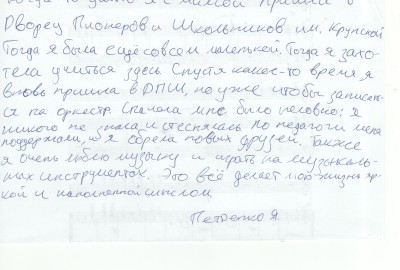 Дворец Пионеров и Школьников им. Крупской
Тогда я была ещё совсем маленькой. Тогда я захо-
тела учиться здесь. Спустя какое-то время я
вновь пришла в ДПШ, но уже чтобы записать-
ся на оркестр. Сначала мне было неловко: я
никого не знала и стеснялась. Но педагоги меня
поддержали, и я обрела новых друзей. Также
я очень люблю музыку и играть на музыкаль-
ных инструментах. Это всё делает мою жизнь яр-
кой и наполненной смыслом
Петренко Я.